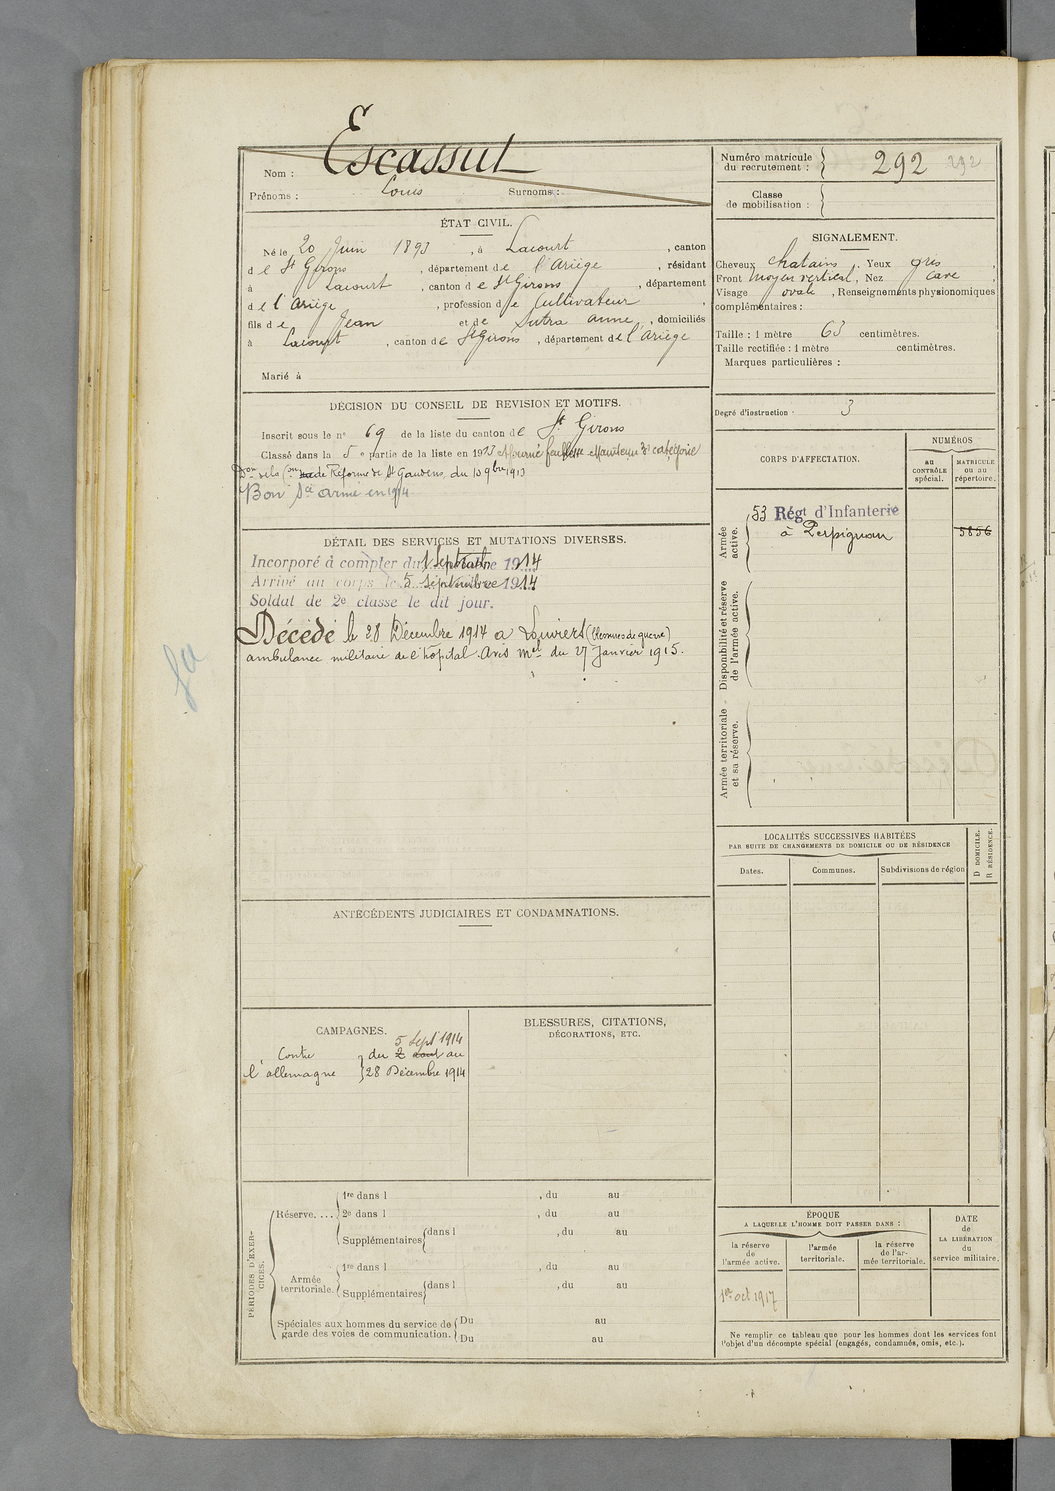 Nom : Escassut
Prénoms : Louis Surnoms :
Numéro matricule du recrutement : 292 292
Classe de mobilisation :
ÉTAT CIVIL.
Né le 20 Juin 1893, à Lacourt, canton
de St Girons, département de l'Ariège, résidant
à Lacourt, canton de St Girons, département
de l'Ariège, profession de Cultivateur,
fils de Jean et de Sutra Anne, domiciliés
à Lacourt, canton de St Girons, département de l'Ariège
Marié à
SIGNALEMENT.
Cheveux chatains. Yeux gris,
Front moyen vertical, Nez cave
Visage ovale, Renseignements physionomiques
complémentaires :
Taille : 1 mètre 63 centimètres.
Taille rectifiée : 1 mètre centimètres.
Marques particulières :
Degré d'instruction · 3
DÉCISION DU CONSEIL DE REVISION ET MOTIFS.
Inscrit sous le n° 69 de la liste du canton de St Girons
Classé dans la 5e partie de la liste en 1913 Ajourné faiblesse Maintenu 3e catégorie
Don de la Con de Réforme de St Gaudens, du 10 9bre 1913
Bon Sce armé en 1914
DÉTAIL DES SERVICES ET MUTATIONS DIVERSES.
Incorporé à compter du 1 Septembre 1914
Arrivé au corps le 5 Septembre 1914
Soldat de 2e classe le dit jour.
Décédé le 28 Décembre 1914 a Louviers (blessures de guerre)
ambulance militaire de l'hôpital. Avis Mel du 27 Janvier 1915.
CORPS D'AFFECTATION.
NUMÉROS
au CONTRÔLE spécial.
MATRICULE ou au répertoire.
Armée active.
53 Régt d'Infanterie
à Perpignan 5856
Disponibilité et réserve de l'armée active.
Armée territoriale et sa réserve.
LOCALITÉS SUCCESSIVES HABITÉES
PAR SUITE DE CHANGEMENTS DE DOMICILE OU DE RÉSIDENCE
Dates. Communes. Subdivisions de région
D DOMICILE. R RÉSIDENCE.
ANTÉCÉDENTS JUDICIAIRES ET CONDAMNATIONS.
CAMPAGNES.
5 Sept 1914
Contre du 2 aout au
l'allemagne 28 Décembre 1914
BLESSURES, CITATIONS,
DÉCORATIONS, ETC.
PÉRIODES D'EXERCICES.
Réserve....
1re dans l , du au
2e dans l , du au
Supplémentaires dans l , du au
Armée territoriale.
1re dans l , du au
Supplémentaires dans l , du au
Spéciales aux hommes du service de garde des voies de communication.
Du au
Du au
ÉPOQUE
A LAQUELLE L'HOMME DOIT PASSER DANS :
la réserve de l'armée active.
l'armée territoriale.
la réserve de l'armée territoriale.
DATE de LA LIBÉRATION du service militaire.
1er oct 1917
Ne remplir ce tableau que pour les hommes dont les services font
l'objet d'un décompte spécial (engagés, condamnés, omis, etc.).